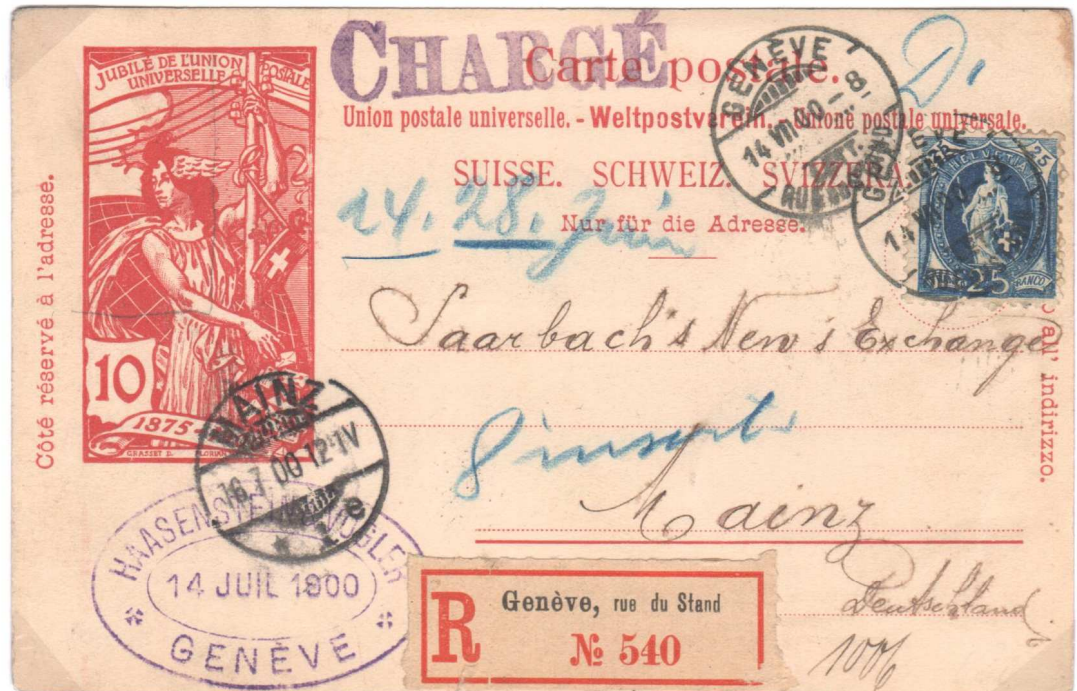 CHARGÉ
Carte postale.
Union postale universelle. - Weltpostverein. - Unione postale universale.
SUISSE. SCHWEIZ. SVIZZERA.
Nur für die Adresse.
Côté réservé à l'adresse.
JUBILÉ DE L'UNION
UNIVERSELLE POSTALE
10
1875
GRASSET D. FLORIAN
GENÈVE
14 VII 00 - 8
GENÈVE
14 VII
HELVETIA
25
25
FRANCO
24. 28. Juin
Saarbach's New's Exchange
Mainz
Deutschland
1006
au' indirizzo.
MAINZ
16.7.00 12-1V
* 1 e
HAASENSTEIN VOGLER
14 JUIL 1900
* GENÈVE *
R
Genève, rue du Stand
№ 540